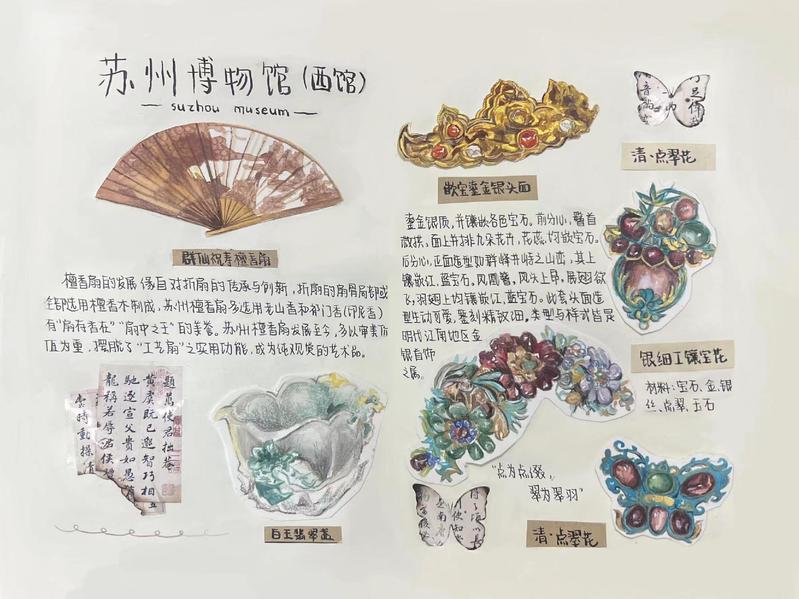 苏州博物馆(西馆)
— suzhou museum —
群仙祝寿檀香扇
檀香扇的发展缘自对折扇的传承与创新,折扇的扇骨局部或
全部选用檀香木制成。苏州檀香扇多选用老山香和邻门香(印尼香)
有"扇有香在""扇中之王"的美誉。苏州檀香扇发展至今,多以审美价
值为重,摆脱了"工艺扇"之实用功能,成为纯观赏的艺术品。
白玉翡翠盖
嵌宝鎏金银头面
鎏金银质,并镶嵌各色宝石。前分心,簪首
微拱,面上并排九朵花卉,花蕊均嵌宝石。
后分心,正面造型如群峰并峙之山峦,其上
镶嵌红、蓝宝石。凤凰簪,凤头上昂,展翅欲
飞,羽翅上均镶嵌红、蓝宝石。此套头面造
型生动可爱,錾刻精致细。类型与样式皆是
明代江南地区金
银首饰
之属。
清·点翠花
银细工镶宝花
材料:宝石、金、银
丝、点翠、玉石
"点为点缀,
翠为翠羽"
清·点翠花